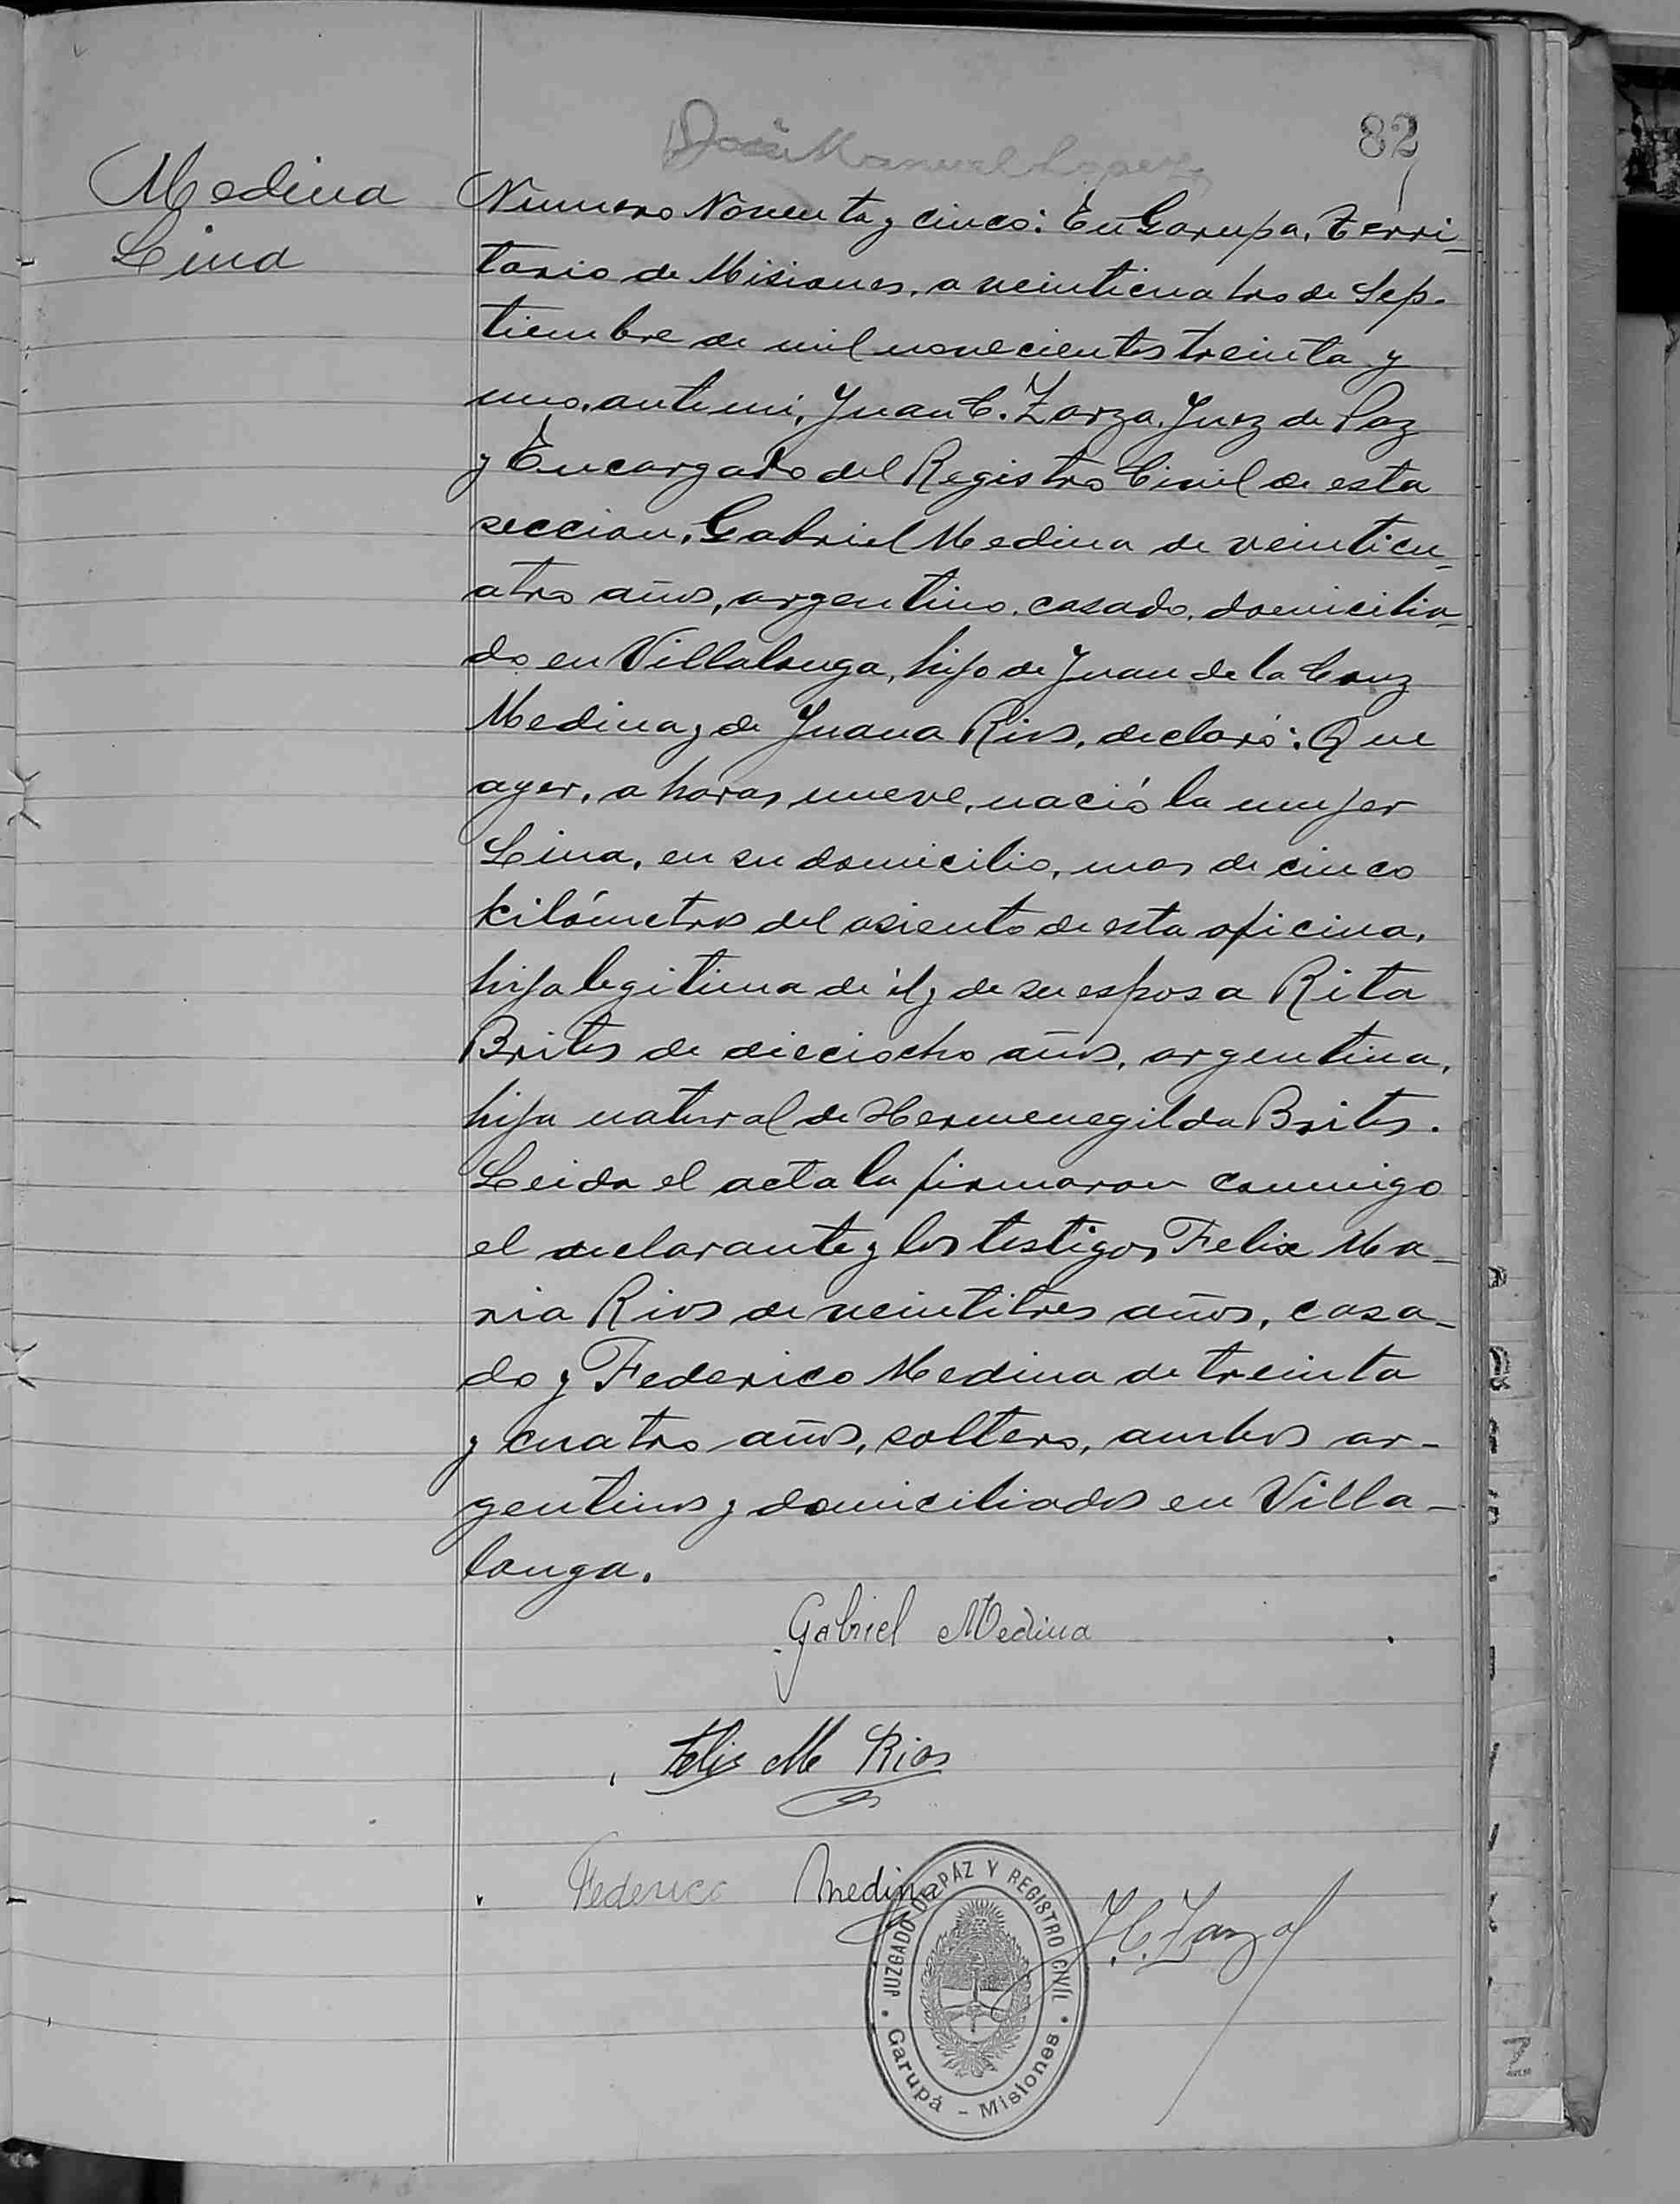 82
Manuel Lopez
Medina
Lina
Número Noventa y cinco: En Garupa, Terri-
torio de Misiones, a veinticuatro de Sep-
tiembre de mil novecientos treinta y
uno, ante mi, Juan C. Zarza, Juez de Paz
y Encargado del Registro Civil de esta
seccion, Gabriel Medina de veinticu-
atro años, argentino, casado, domicilia-
do en Villalonga, hijo de Juan de la Cruz
Medina y de Juana Rios, declaró: Que
ayer, a horas nueve, nació la mujer
Lina, en su domicilio, mas de cinco
kilómetros del asiento de esta oficina,
hija legitima de él y de su esposa Rita
Brites de dieciocho años, argentina,
hija natural de Hermenegilda Brites.
Leida el acta la firmaron conmigo
el declarante y los testigos Felix Ma-
ria Rios de veintitres años, casa-
do y Federico Medina de treinta
y cuatro años, soltero, ambos ar-
gentinos y domiciliados en Villa-
longa.
Gabriel Medina
Felix M Rios
Federico Medina
J. C. Zarza
JUZGADO DE PAZ Y REGISTRO CIVIL
Garupá - Misiones